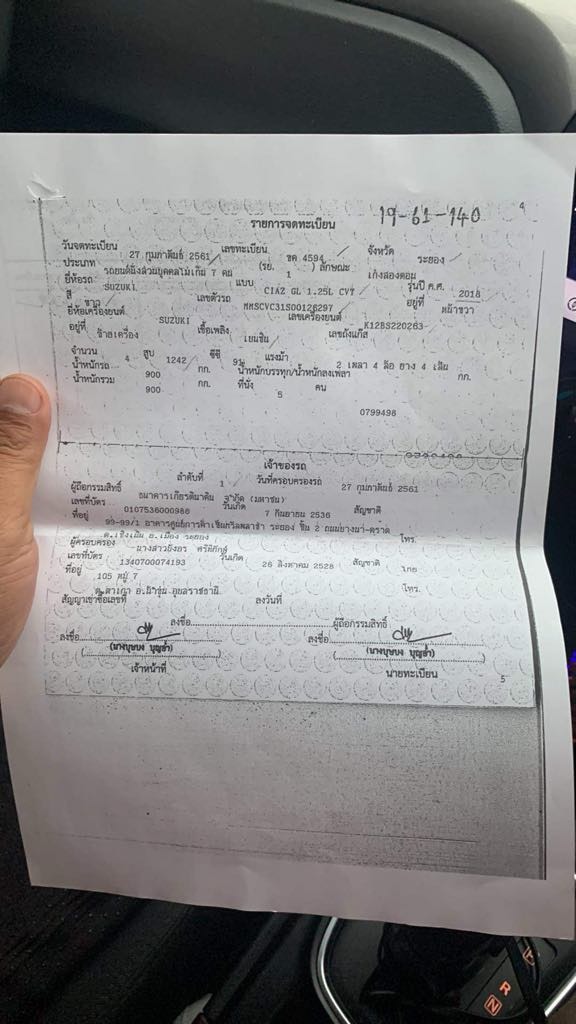 19-61-140
4
รายการจดทะเบียน
วันจดทะเบียน 27 กุมภาพันธ์ 2561 เลขทะเบียน ขค 4594 จังหวัด ระยอง
ประเภท รถยนต์นั่งส่วนบุคคลไม่เกิน 7 คน (รย. 1 ) ลักษณะ เก๋งสองตอน
ยี่ห้อรถ SUZUKI แบบ CIAZ GL 1.25L CVT รุ่นปี ค.ศ. 2018
สี ขาว เลขตัวรถ MMSCVC31S00126297 อยู่ที่ หน้าขวา
ยี่ห้อเครื่องยนต์ SUZUKI เลขเครื่องยนต์ K12BS220263
อยู่ที่ ซ้ายเครื่อง เชื้อเพลิง เบนซิน เลขถังแก๊ส
จำนวน 4 สูบ 1242 ซีซี 91 แรงม้า 2 เพลา 4 ล้อ ยาง 4 เส้น
น้ำหนักรถ 900 กก. น้ำหนักบรรทุก/น้ำหนักลงเพลา กก.
น้ำหนักรวม 900 กก. ที่นั่ง 5 คน
0799498
เจ้าของรถ
ลำดับที่ 1 วันที่ครอบครองรถ 27 กุมภาพันธ์ 2561
ผู้ถือกรรมสิทธิ์ ธนาคารเกียรตินาคิน จำกัด (มหาชน)
เลขที่บัตร 0107536000986 วันเกิด 7 กันยายน 2536 สัญชาติ
ที่อยู่ 99-99/1 อาคารศูนย์การค้าเซ็นทรัลพลาซ่า ระยอง ชั้น 2 ถนนบางนา-ตราด
ต.เชิงเนิน อ.เมือง ระยอง โทร.
ผู้ครอบครอง นางสาวยิ่งอร
เลขที่บัตร 1340700074193 วันเกิด 26 สิงหาคม 2528 สัญชาติ ไทย
ที่อยู่ 105 หมู่ 7
อ.น้ำขุ่น อุบลราชธานี โทร.
สัญญาเช่าซื้อเลขที่ ลงวันที่
ลงชื่อ ผู้ถือกรรมสิทธิ์
ลงชื่อ ลงชื่อ
(นางบุษบง บุญช่ำ) (นางบุษบง บุญช่ำ)
เจ้าหน้าที่ นายทะเบียน
5
R
N